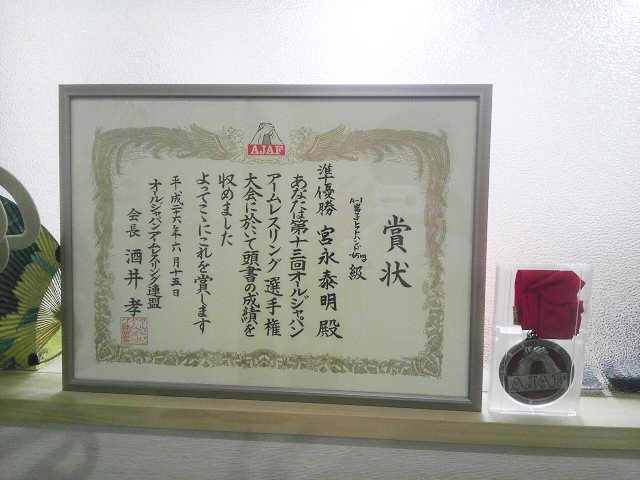 AJAF
賞状
級
準優勝 宮永泰明 殿
あなたは第十三回オールジャパン
アームレスリング選手権
大会に於いて頭書の成績を
収めました
よってここにこれを賞します
平成二十六年六月十五日
オールジャパンアームレスリング連盟
会長 酒井 孝
AJAF